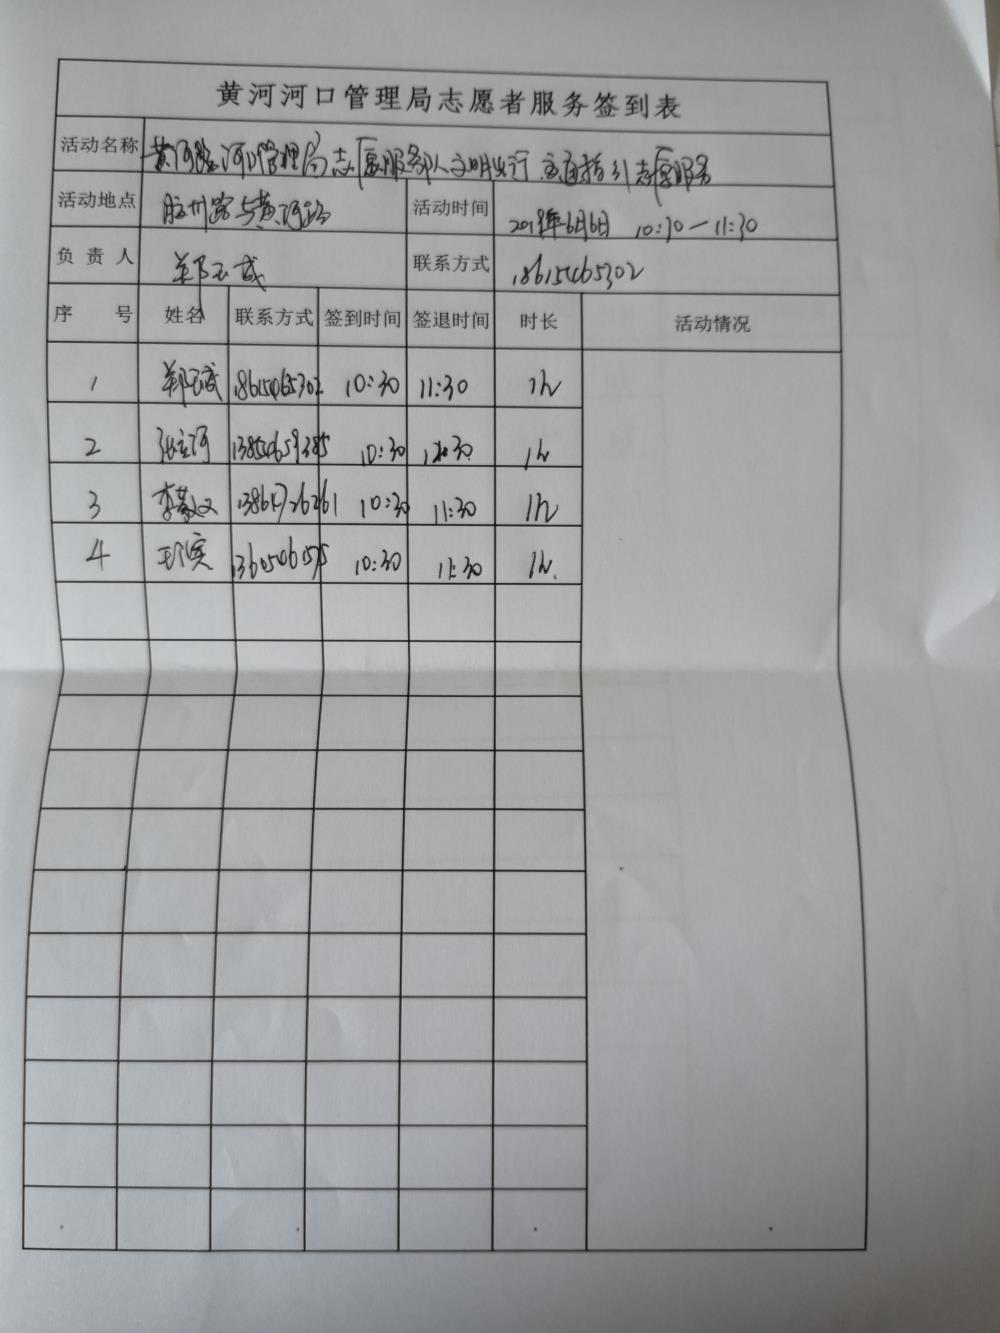 黄河河口管理局志愿者服务签到表
活动名称 黄河 河口管理局志愿服务队文明出行 交通指引志愿服务
活动地点 胶州路与黄河路 活动时间 2019年6月6日 10:30—11:30
负责人 郑玉成 联系方式 18615465302
序号 姓名 联系方式 签到时间 签退时间 时长 活动情况
1 郑玉成 18615465302 10:30 11:30 1h
2 张立河 13854659385 10:30 1h
3 李敬义 10:30 11:30 1h
4 10:30 11:30 1h.